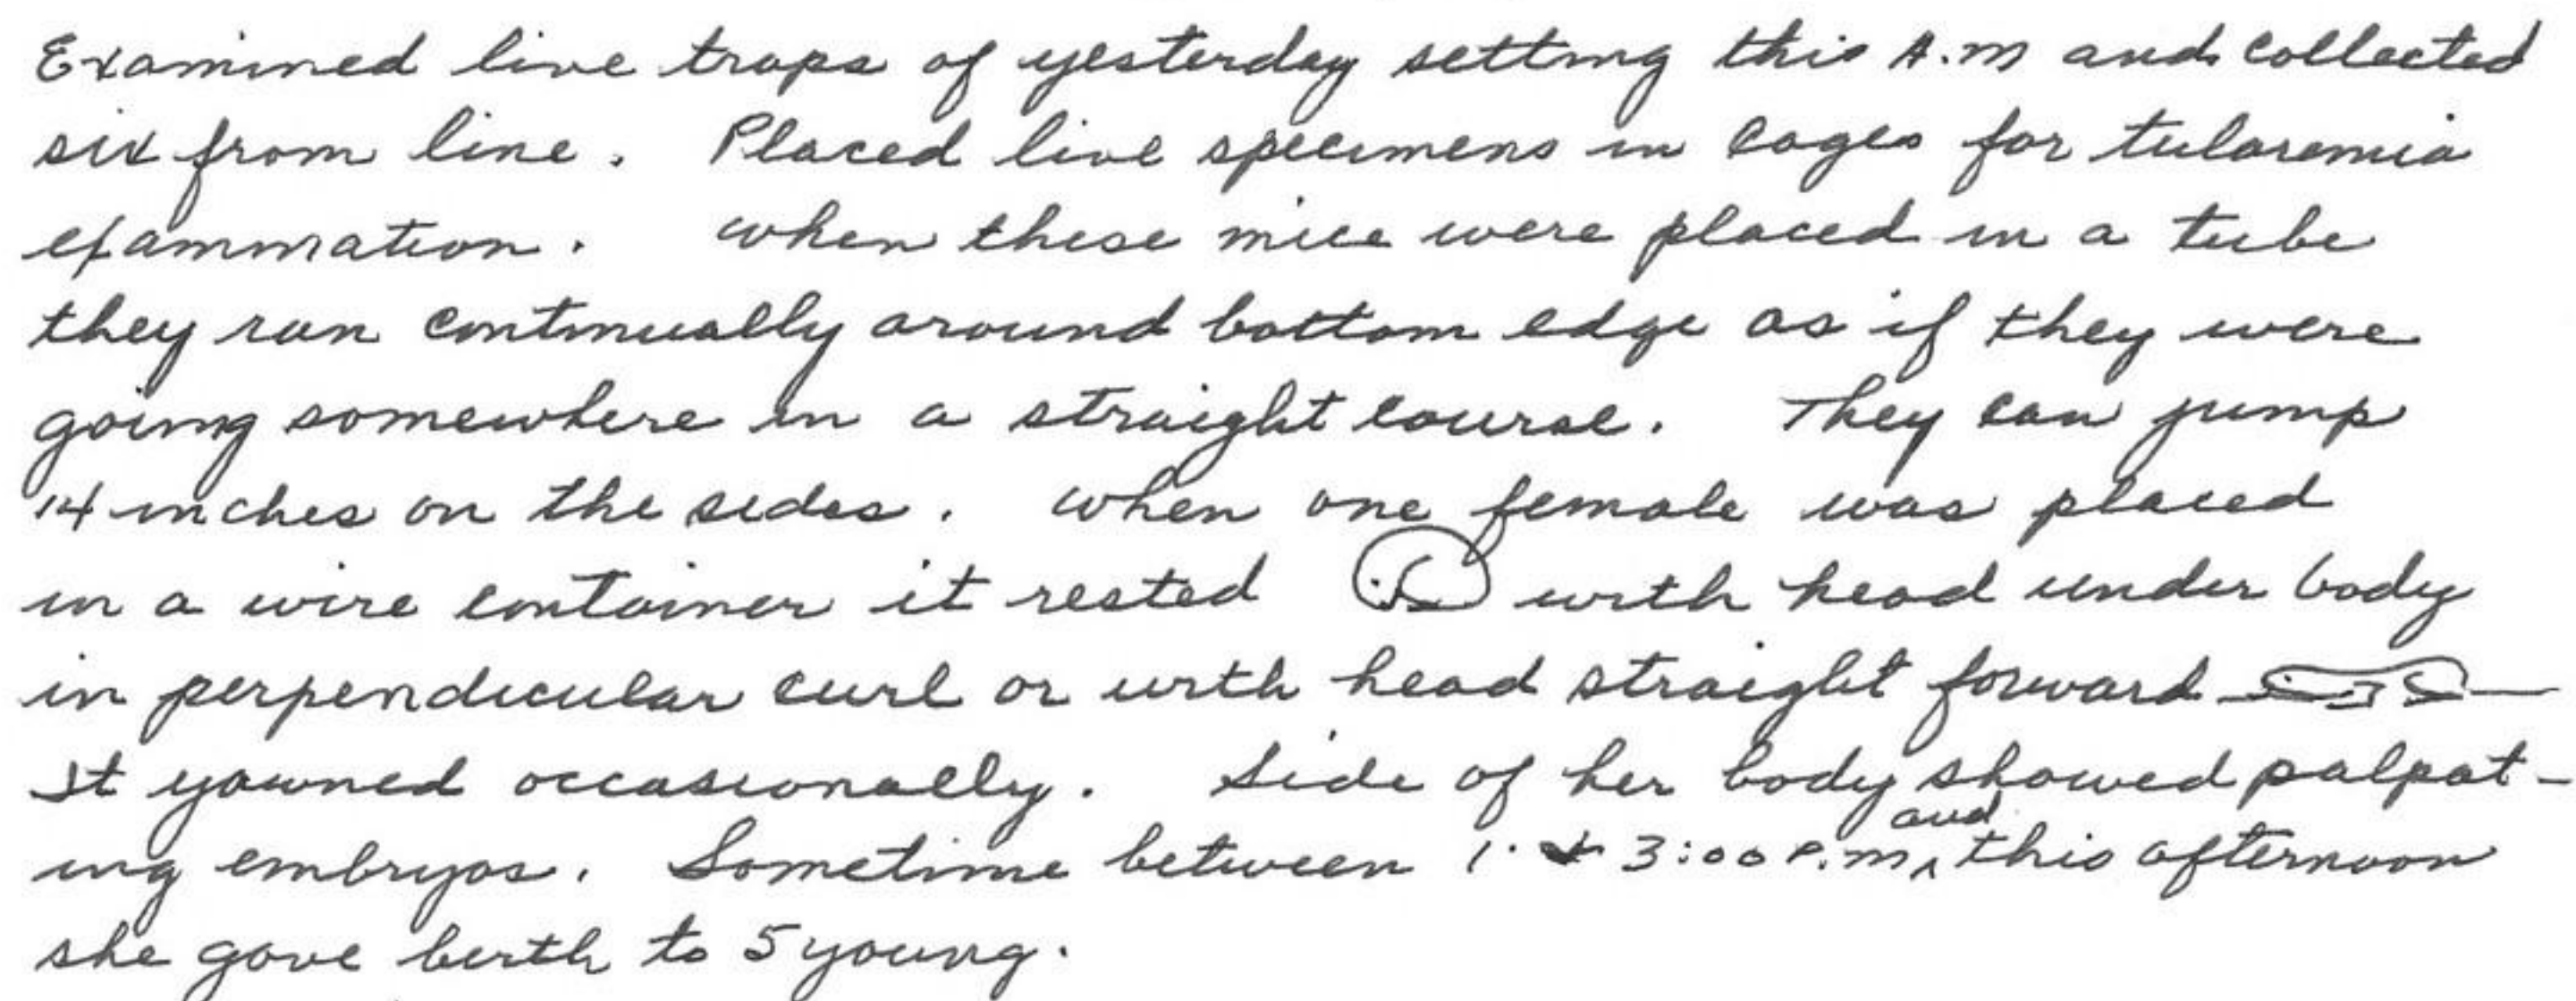 Examined live traps of yesterday setting this A.M and collected
six from line. Placed live specimens in cages for tularemia
examination. When these mice were placed in a tube
they run continually around bottom edge as if they were
going somewhere in a straight course. They can jump
14 inches on the sides. When one female was placed
in a wire container it rested with head under body
in perpendicular curl or with head straight forward
It yawned occasionally. Side of her body showed palpat-
ing embryos. Sometime between 1. & 3:00 P.M. and this afternoon
she gave birth to 5 young.